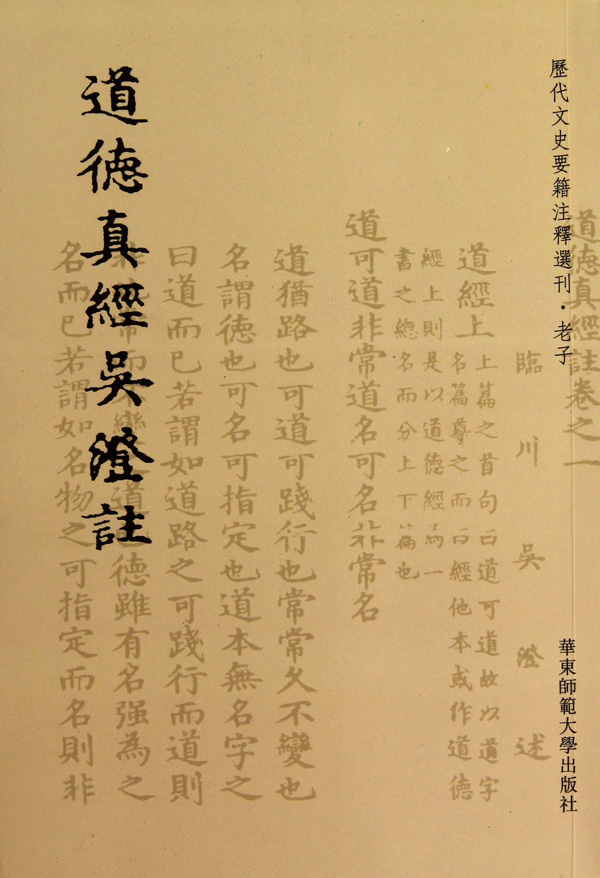 道德真經吳澄註
歷代文史要籍注釋選刊・老子
華東師範大學出版社
道德真經註卷之一
臨川吳澄述
道經上
上篇之首句曰道可道故以道字
名篇尊之而曰經他本或作道德
經上則是以道德經為一
書之總名而分上下篇也
道可道非常道名可名非常名
道猶路也可道可踐行也常常久不變也
名謂德也可名可指定也道本無名字之
曰道而已若謂如道路之可踐行而道則
常而變道德雖有名強為之
名而已若謂如名物之可指定而名則非